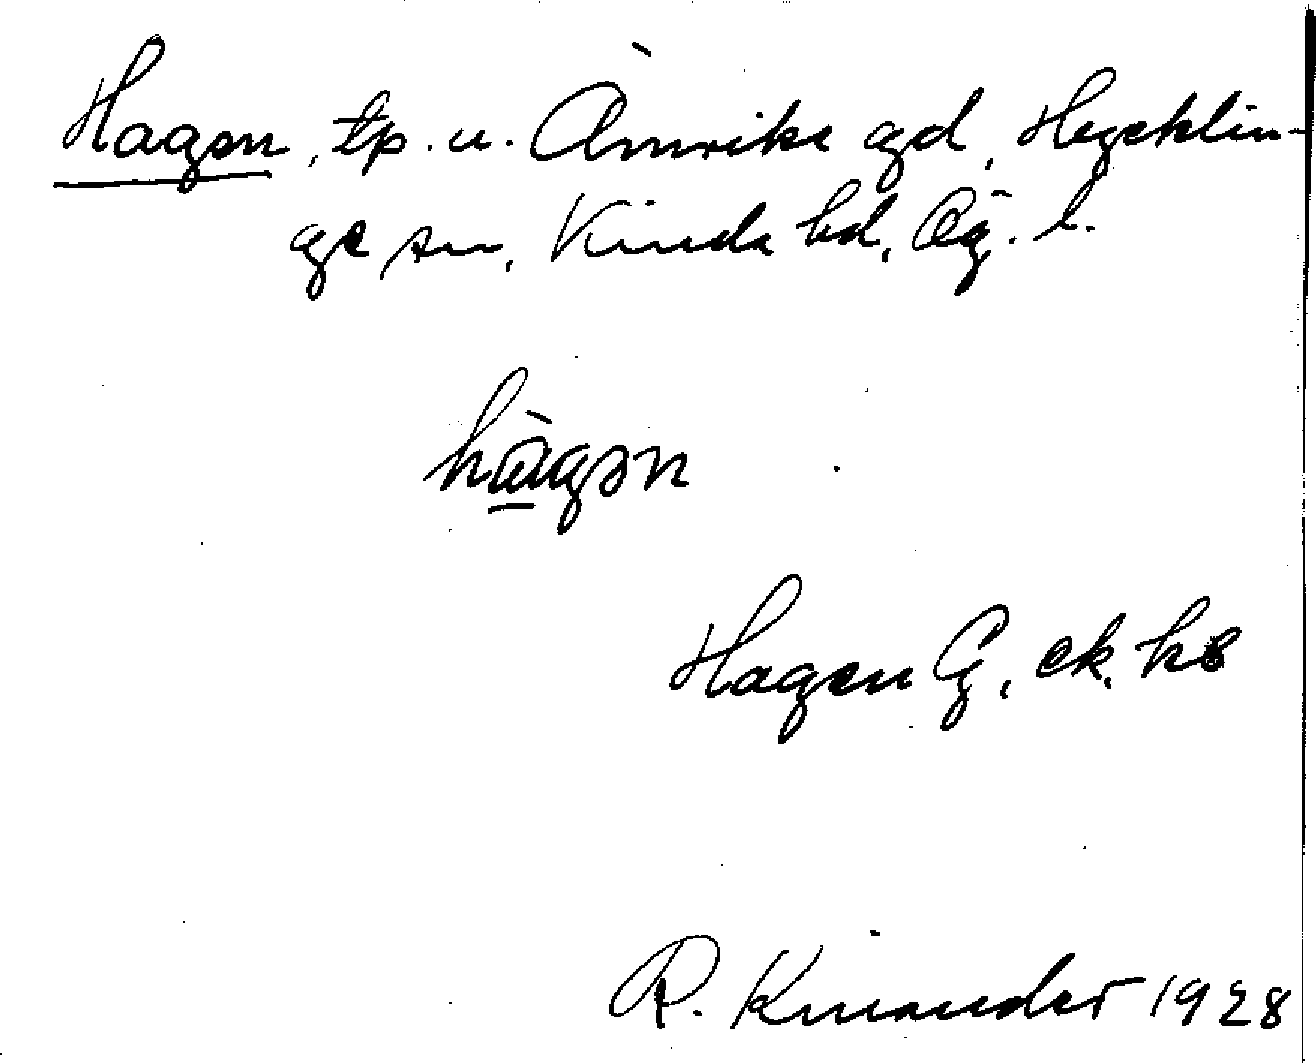 Hagen, tp. u. Åmrike gd, Hycklin-
ge sn, Kinda hd, Ög. l.
hàgən
Hagen G, ek. ks
R. Kinander 1928